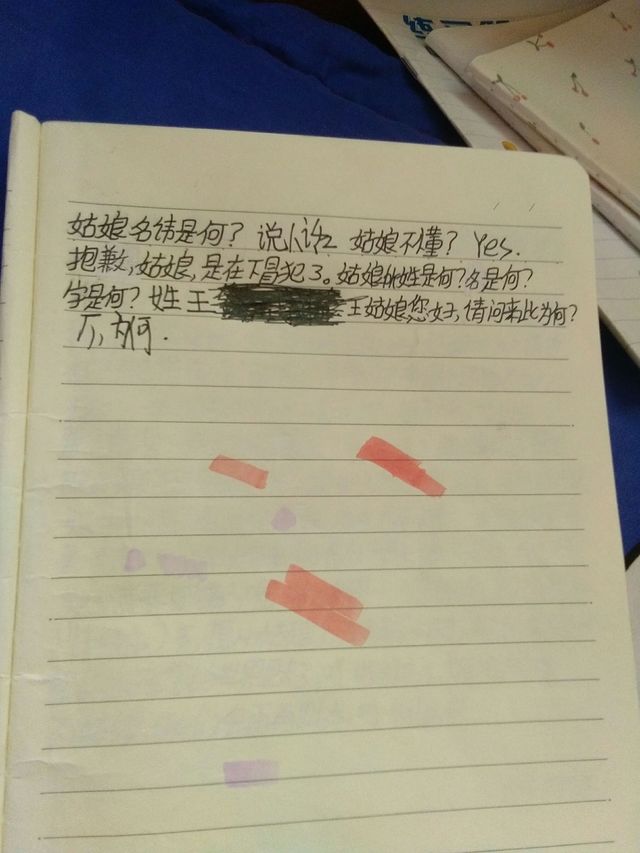 练习
姑娘名讳是何? 说人话 姑娘不懂? Yes.
抱歉,姑娘,是在下冒犯了。姑娘姓是何?名是何?
字是何? 姓王 王姑娘您好,请问来此为何?